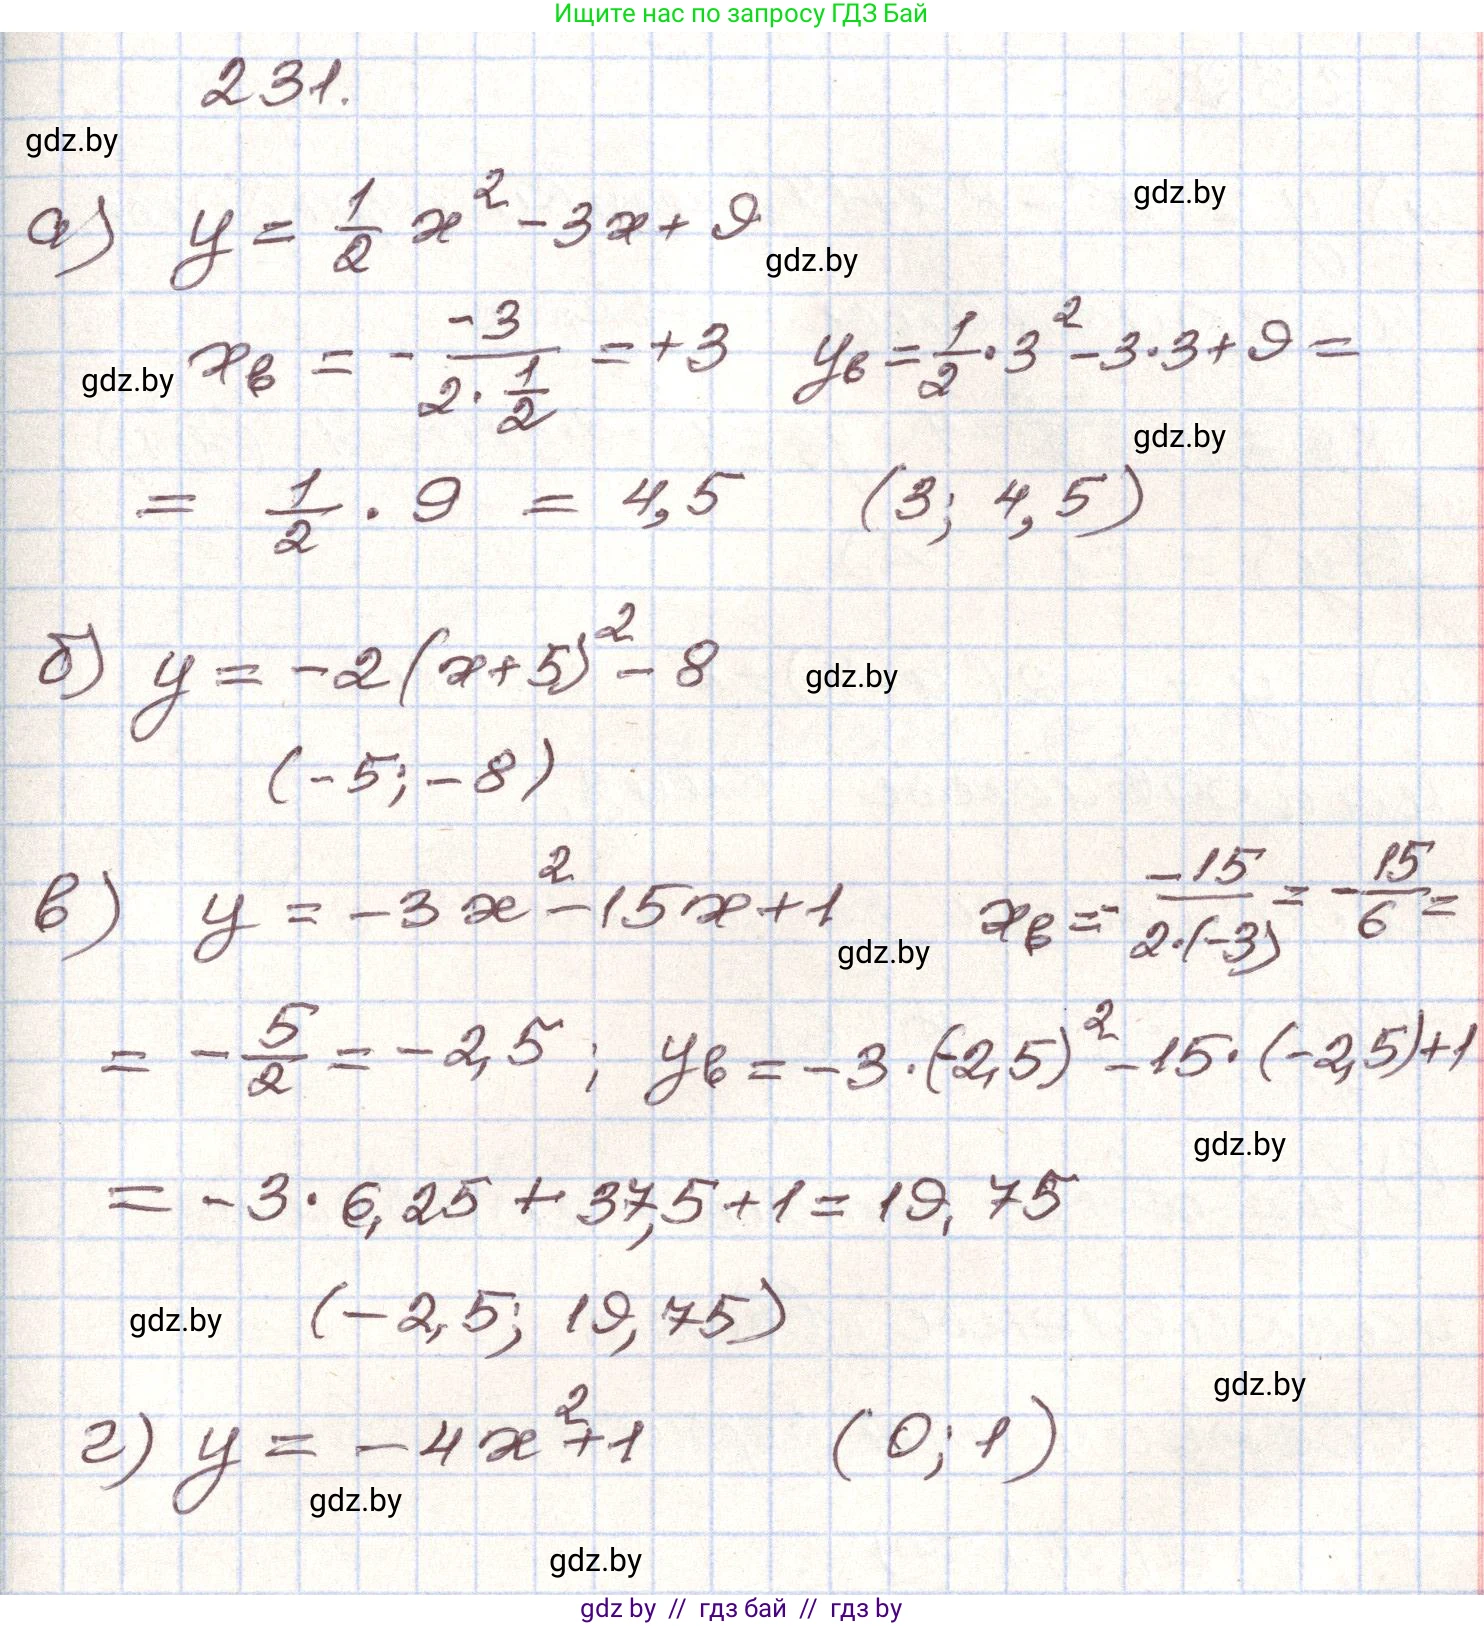 Ищите нас по запросу ГДЗ Бай
231.
gdz.by
gdz.by
а) y = 1/2 x² - 3x + 9
gdz.by
gdz.by xв = - -3/(2 · 1/2) = +3 yв = 1/2 · 3² - 3 · 3 + 9 =
gdz.by
= 1/2 · 9 = 4,5 (3; 4,5)
б) y = -2(x+5)² - 8
gdz.by
(-5; -8)
в) y = -3x² - 15x + 1 xв = - -15/(2·(-3)) = - 15/6 =
gdz.by
= - 5/2 = -2,5 ; yв = -3 · (-2,5)² - 15 · (-2,5) + 1
gdz.by
= -3 · 6,25 + 37,5 + 1 = 19,75
gdz.by (-2,5; 19,75)
gdz.by
г) y = -4x² + 1 (0; 1)
gdz.by
gdz.by
gdz by // гдз бай // гдз by